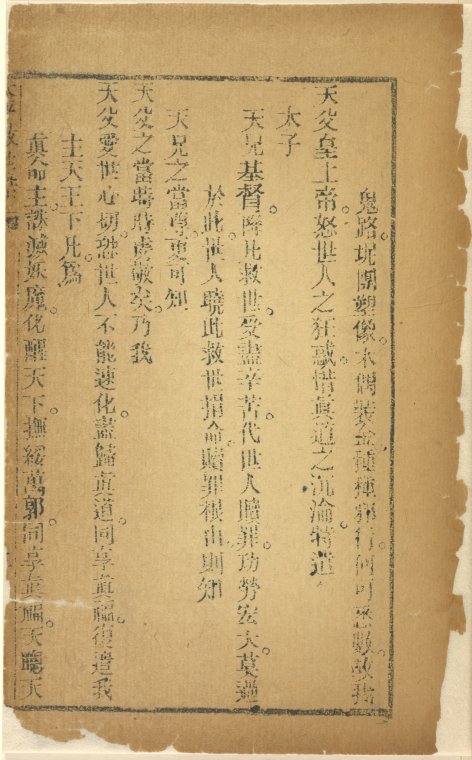 鬼路坭團塑像木偶裝金種種邪行何可悉數故我
天父皇上帝怒世人之狂惑。惜眞道之沉淪。特遣
太子
天兄基督。降凡救世。受盡辛苦。代世人贖罪。功勞宏大莫過
於此世人曉此救世捐命。贖罪根由則知
天兄之當尊。更可知
天父之當時時虔敬矣。乃我
天父愛世心切。恐世人不能速化。盡歸眞道。同享眞福。復遣我
主天王下凡爲
眞命主。誅滅妖魔。化醒天下。撫綏萬郭。同享眞福。天聽天